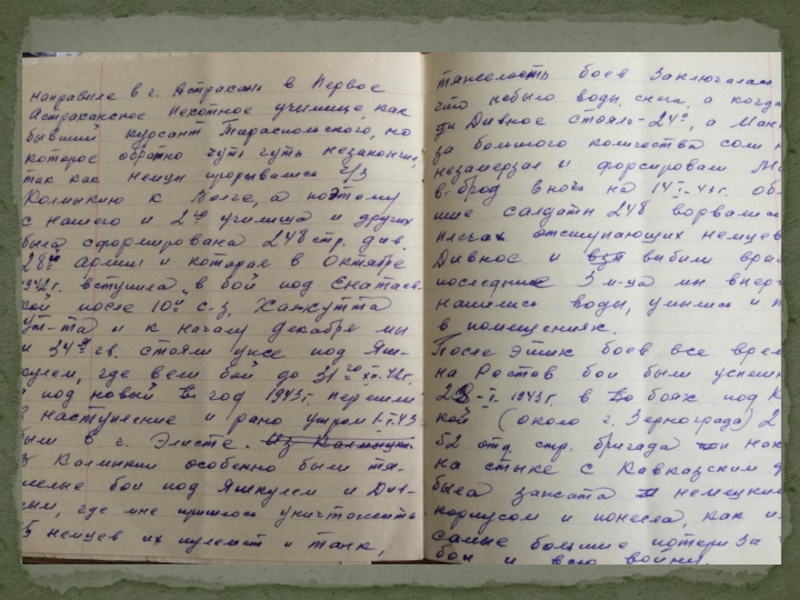 направила в г. Астрахань в Первое
Астраханское Пехотное училище, как
бывший курсант Тираспольского, но
которое обратно чуть чуть незакончил,
так как немцы прорывались ч/з
Калмыкию к Волге, а поэтому
с нашего и 2го училища и других
была сформирована 248 стр. див.
28й армии и которая в октябре
1942г. вступила в бой под
кой после 10й с-з, Халхутта
и к началу декабря мы
и 34й гв. стояли уже под Яш-
кулем, где вели бой до 31го XII-42г.
под новый год 1943г. перешли
в наступление и рано утром 1-I-43
были в г. Элисте. Из Калмыкии
з Калмыкии особенно были тя-
желые бои под Яшкулем и Див-
ным, где мне пришлось уничтожить
5 немцев их пулемет и танк,
тяжелость боев заключалась
что небыло воды, снега, а когда
Дивное стояло -24°, а Ман
за большого количества соли н
незамерзал и форсировали М
в-брод в ночь на 14-I-43г. об
шие солдаты 248 ворвались
плечах отступающих немцев
Дивное и взя выбили враг
последние 3 м-ца мы впер
нашились воды, умылись и п
в помещениях.
После этих боев все врем
на Ростов бои были успешн
28-I-1943г. в боях под К
кой (около г. Зернограда) 2
52 отд. стр. бригада нах
на стыке с Кавказским ф
была зажата немецким
корпусом и понесла, как и
самые большие потери за
бои и всю войну.